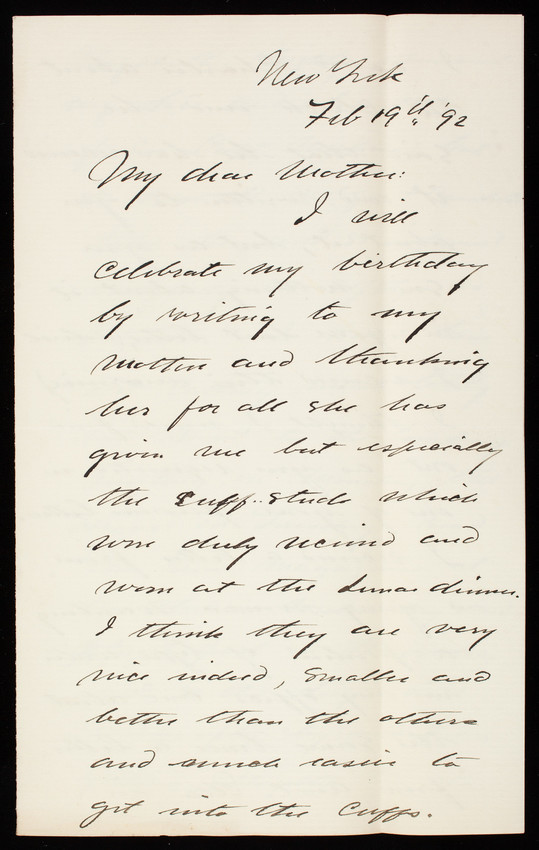 New York
Feb 19th '92
My dear Mother:
I will
celebrate my birthday
by writing to my
mother and thanking
her for all she has
given me but especially
the cuff-studs which
were duly received and
worn at the dinner.
I think they are very
nice indeed, smaller and
better than the others
and much easier to
get into the cuffs.